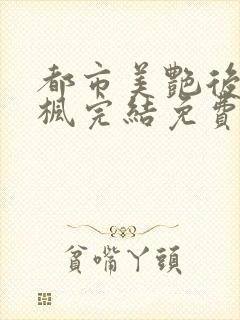 都市美艷後
楓完結免費
貧嘴丫頭